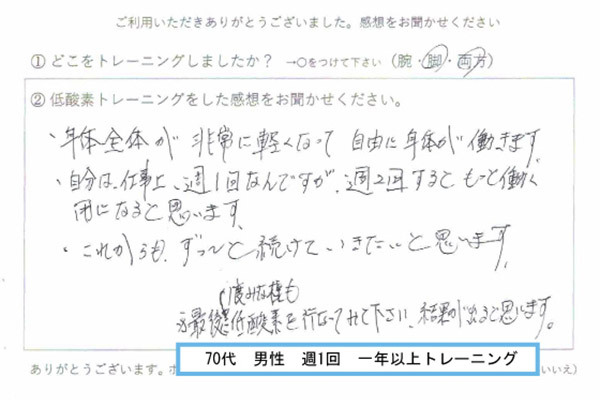 ご利用いただきありがとうございました。感想をお聞かせください
① どこをトレーニングしましたか? →○をつけて下さい (腕・脚・両方)
② 低酸素トレーニングをした感想をお聞かせください。
・身体全体が 非常に軽くなって 自由に身体が働きます
・自分は、仕事上、週1回なんですが、週2回すると もっと働く
になると思います
・これからも、ずっと続けていきたいと思います
1度みな様も
※最後 低酸素を行なってみて下さい、結果が出ると思います。
70代 男性 週1回 一年以上トレーニング
ありがとうございます。
いいえ)